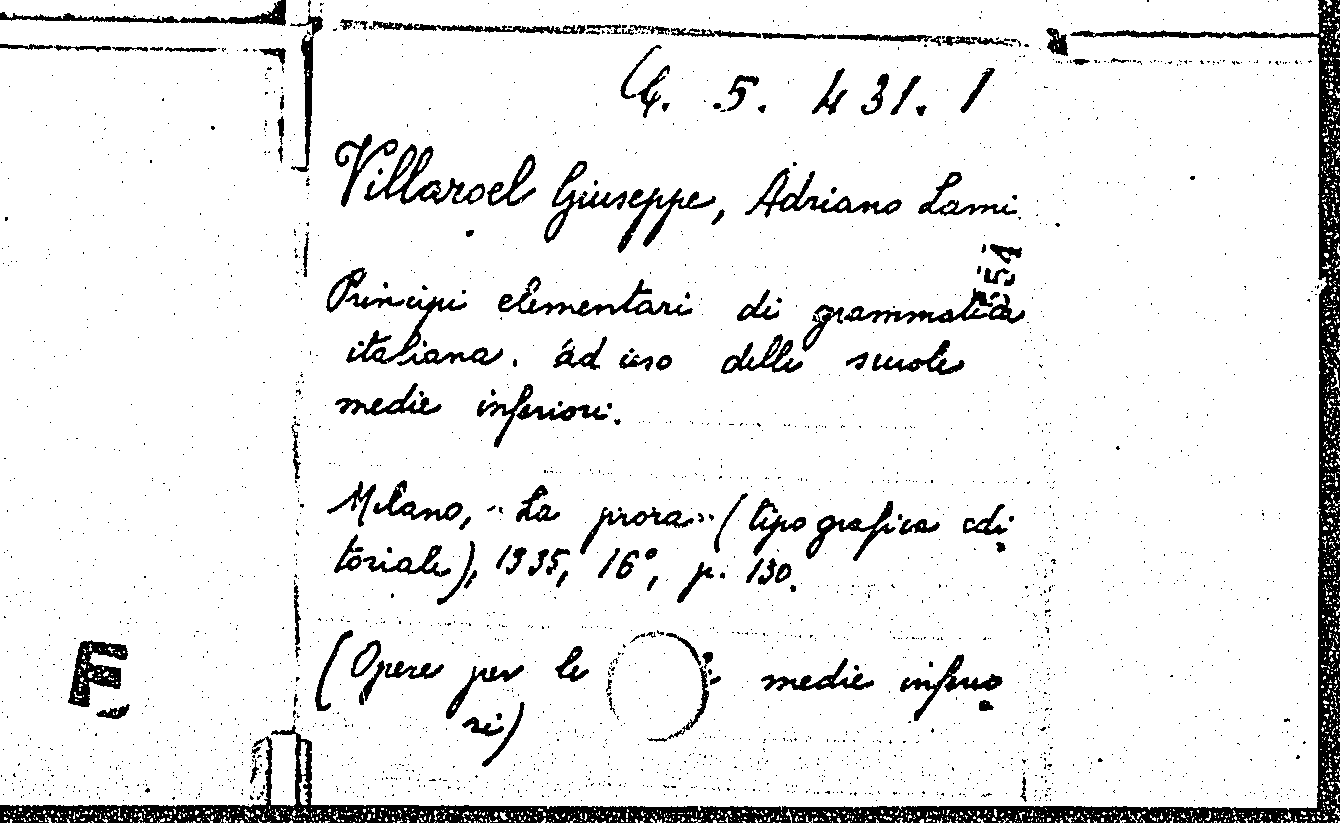 G. 5. 431. 1
Villaroel Giuseppe, Adriano Lami
354
Principi elementari di grammatica
italiana. ad uso delle scuole
medie inferiori.
Milano, "La prora" (tipografica edi-
toriale), 1935, 16°, p. 130.
(Opere per le medie inferio-
ri)
E